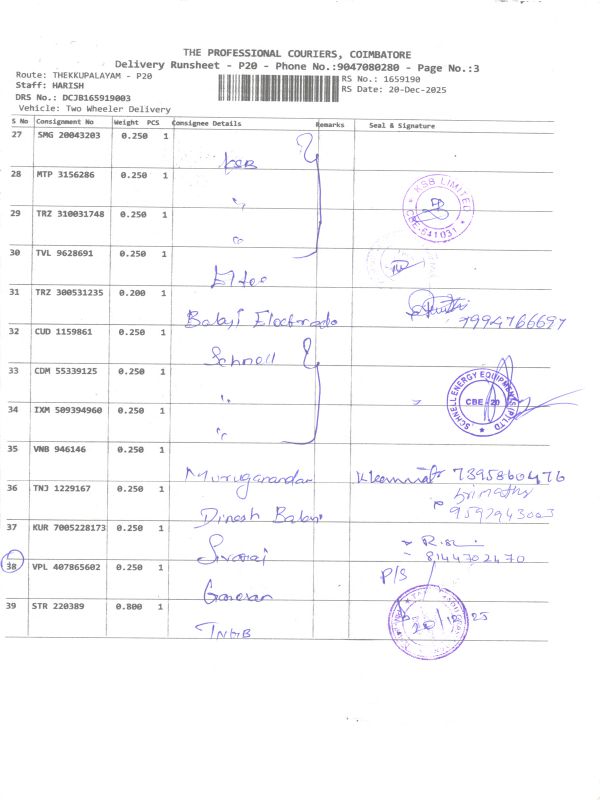 THE PROFESSIONAL COURIERS, COIMBATORE
Delivery Runsheet - P20 - Phone No.:9047080280 - Page No.:3
Route: THEKKUPALAYAM - P20
RS No.: 1659190
Staff: HARISH
RS Date: 20-Dec-2025
DRS No.: DCJB165919003
Vehicle: Two Wheeler Delivery
S No Consignment No Weight PCS Consignee Details Remarks Seal & Signature
27 SMG 20043203 0.250 1 KSB
28 MTP 3156286 0.250 1 "
KSB LIMITED
CBE-641031
29 TRZ 310031748 0.250 1 "
30 TVL 9628691 0.250 1
31 TRZ 300531235 0.200 1 Balaji Electrodo 7994766697
32 CUD 1159861 0.250 1 Schnell
33 CDM 55339125 0.250 1 "
SCHNELL ENERGY EQUIPMENTS (P) LTD
CBE - 20
34 IXM 509394960 0.250 1 "
35 VNB 946146 0.250 1 Muruganandan 7395860476
36 TNJ 1229167 0.250 1 Dinesh Babu 9592943003
37 KUR 7005228173 0.250 1 Sivaraj 8144702470
38 VPL 407865602 0.250 1 Ganesan P/S
39 STR 220389 0.800 1 TNHB 20/12/25